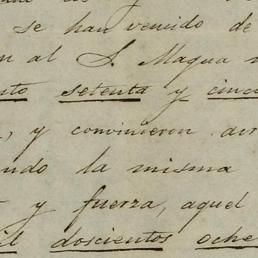 se han venido de
al S. Magua
setenta y cinc
, y convinieron
ndo la misma
y fuerza, aquel
il doscientos oche